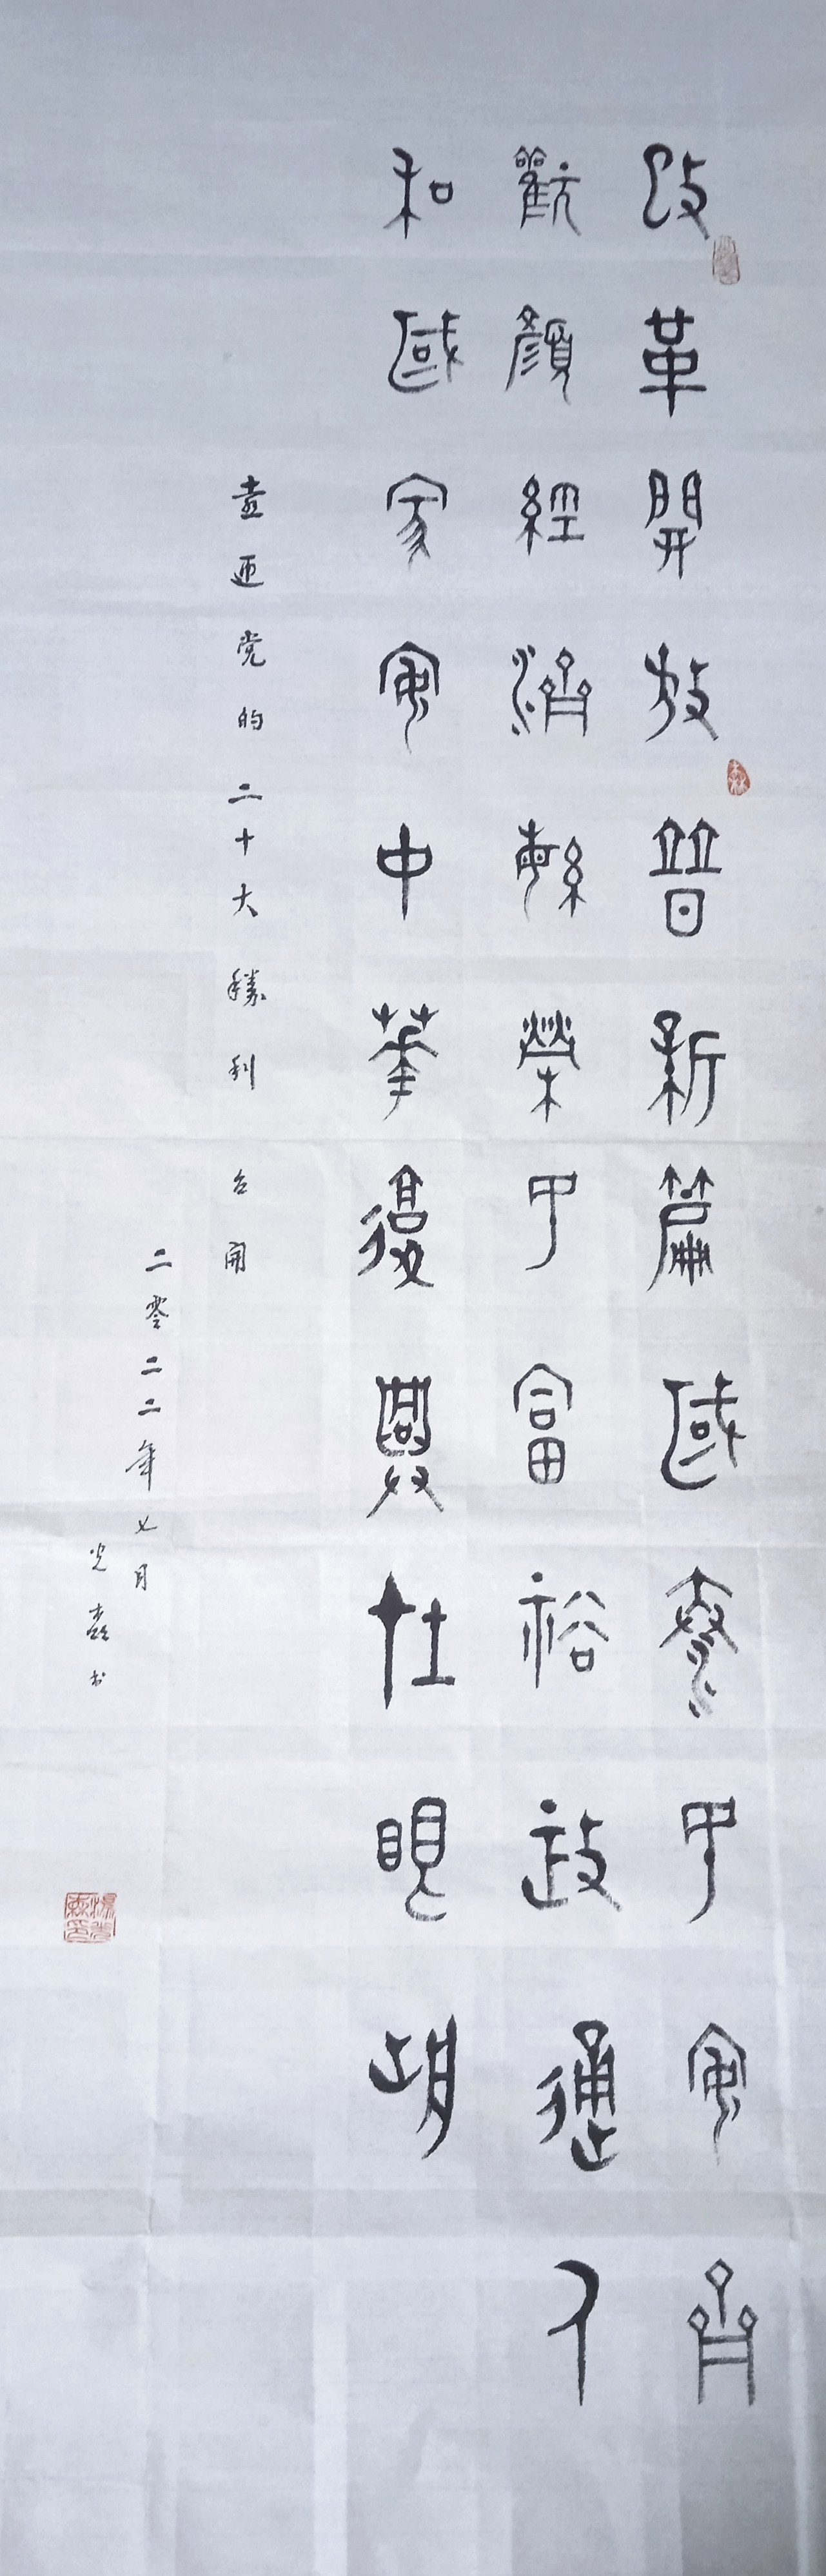 改革開放普新篇國泰民安齊
歡顏經濟繁榮民富裕政通人
和國家安中華復興在眼前
喜迎党的二十大勝利召開
二零二二年七月
光森书